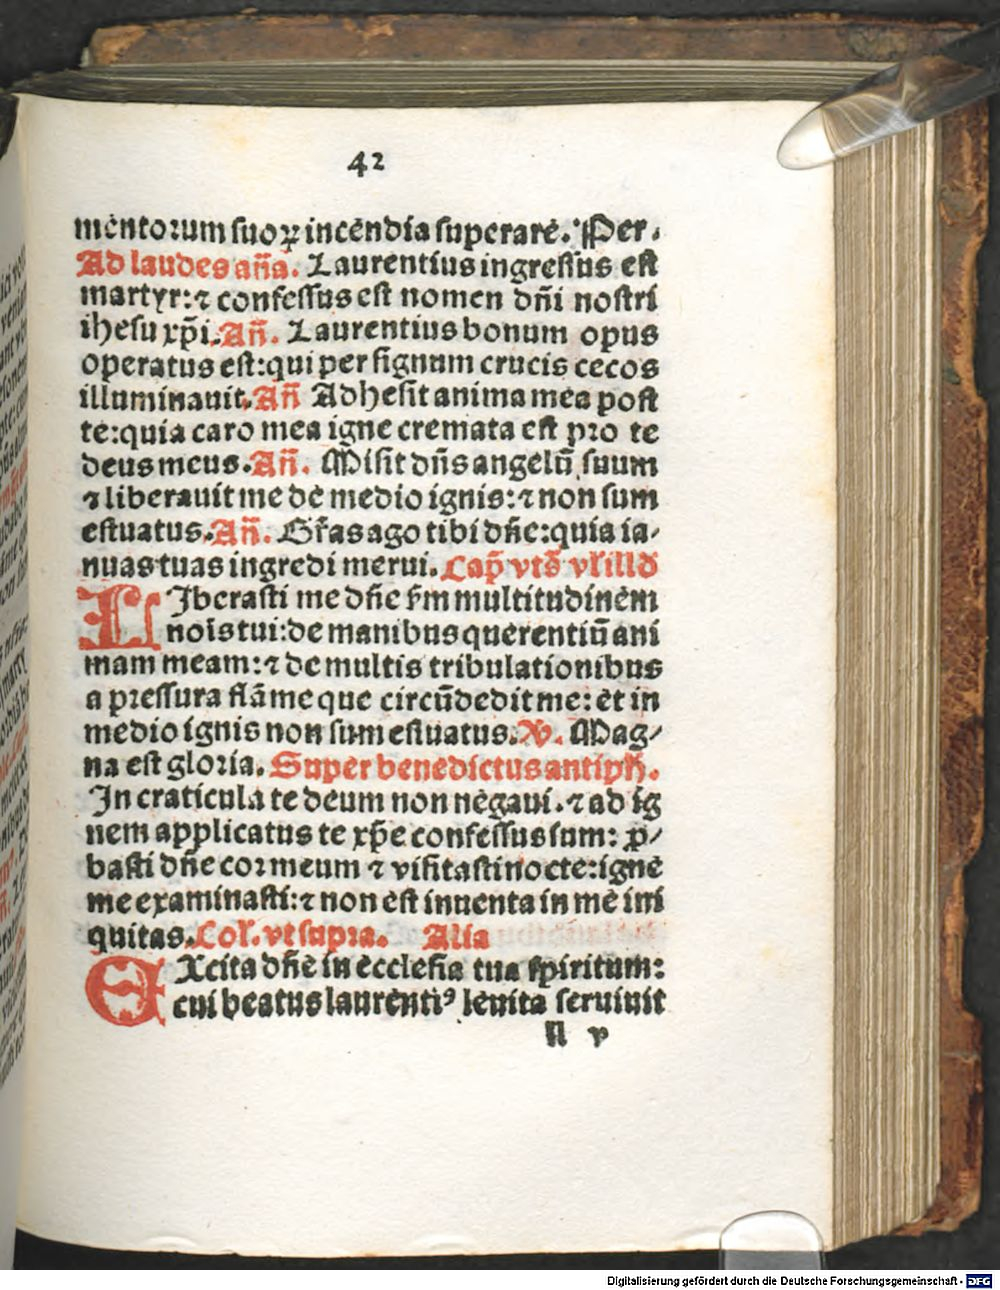 42
mentorum suoꝝ incendia superare. Per.
Ad laudes aña. Laurentius ingressus est
martyr: ⁊ confessus est nomen dñi nostri
ihesu xp̄i. Añ. Laurentius bonum opus
operatus est: qui per signum crucis cecos
illuminauit. Añ Adhesit anima mea post
te: quia caro mea igne cremata est pro te
deus meus. Añ. Misit dñs angelū suum
⁊ liberauit me de medio ignis: ⁊ non sum
estuatus. Añ. Gr̄as ago tibi dñe: quia ia-
nuas tuas ingredi merui. Cap̄
LIberasti me dñe multitudinem
nois̄ tui: de manibus querentiū ani
mam meam: ⁊ de multis tribulationibus
a pressura flāme que circūdedit me: et in
medio ignis non sum estuatus. ꝟ. Mag-
na est gloria. Super benedictus antiph.
In craticula te deum non negaui. ⁊ ad ig
nem applicatus te xp̄e confessus sum: ꝓ-
basti dñe cor meum ⁊ visitasti nocte: igne
me examinasti: ⁊ non est inuenta in me ini
quitas. Col. vt supra. Alia
EXcita dñe in ecclesia tua spiritum:
cui beatus laurentiꝰ leuita seruiuit
n v
Digitalisierung gefördert durch die Deutsche Forschungsgemeinschaft - DFG